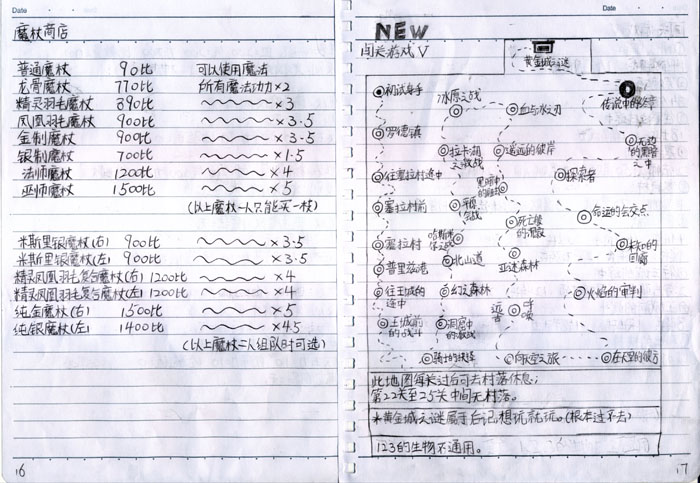 Date
魔杖商店
普通魔杖 90比 可以使用魔法
龙骨魔杖 770比 所有魔法功力×2
精灵羽毛魔杖 390比 ×3
凤凰羽毛魔杖 900比 ×3.5
金制魔杖 900比 ×3.5
银制魔杖 700比 ×1.5
法师魔杖 1200比 ×4
巫师魔杖 1500比 ×5
(以上魔杖一人只能买一枝)
米斯里银魔杖(右) 900比 ×3.5
米斯里银魔杖(左) 900比 ×3.5
精灵凤凰羽毛复合魔杖(右) 1200比 ×4
精灵凤凰羽毛复合魔杖(左) 1200比 ×4
纯金魔杖(右) 1500比 ×5
纯银魔杖(左) 1400比 ×4.5
(以上魔杖二人组队时可选)
16
Date
NEW
闯关游戏V
黄金城之谜
初试身手
冰原之战
血与水之刃
传说中的
罗德镇
拉卡湖之激战
遥远的彼岸
无边的黑暗之中
往塞拉村途中
黑暗中的
探索者
塞拉村前
平原
死亡楼的
命运的交点
塞拉村
哈斯
北山道
亚速森林
的回廊
普里兹港
往王城的途中
幻之森林
远古的呼唤
火焰的审判
王城前的战斗
洞窟中的激战
骑士的抉择
向天空之旅
在天空的彼方
此地图每关过后可去村落休息;
第22关至25关中间无村落。
*黄金城之谜属于后记想玩就玩。(根本过不去)
123的生物不通用。
17